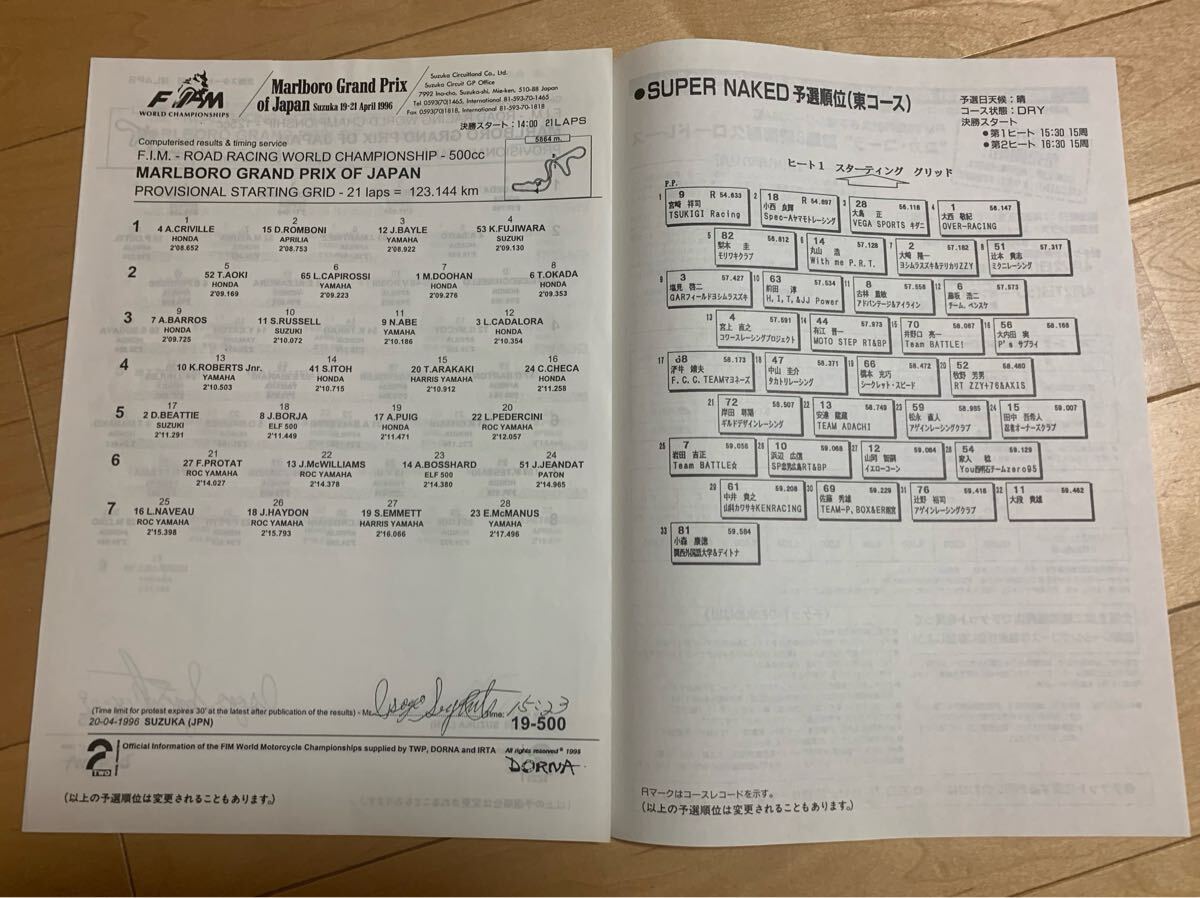 FIM
WORLD CHAMPIONSHIPS
Marlboro Grand Prix
of Japan Suzuka 19-21 April 1996
Suzuka Circuitland Co., Ltd.
Suzuka Circuit GP Office
7992 Ino-cho, Suzuka-shi, Mie-ken, 510-88 Japan
Tel 0593(70)1465, International 81-593-70-1465
Fax 0593(70)1818, International 81-593-70-1818
決勝スタート：14:00 21LAPS
5864 m.
Computerised results & timing service
F.I.M. - ROAD RACING WORLD CHAMPIONSHIP - 500cc
MARLBORO GRAND PRIX OF JAPAN
PROVISIONAL STARTING GRID - 21 laps = 123.144 km
1 2 3 4
1 4 A.CRIVILLE 15 D.ROMBONI 12 J.BAYLE 53 K.FUJIWARA
HONDA APRILIA YAMAHA SUZUKI
2'08.652 2'08.753 2'08.922 2'09.130
5 6 7 8
2 52 T.AOKI 65 L.CAPIROSSI 1 M.DOOHAN 6 T.OKADA
HONDA YAMAHA HONDA HONDA
2'09.169 2'09.223 2'09.276 2'09.353
9 10 11 12
3 7 A.BARROS 11 S.RUSSELL 9 N.ABE 3 L.CADALORA
HONDA SUZUKI YAMAHA HONDA
2'09.725 2'10.072 2'10.186 2'10.354
13 14 15 16
4 10 K.ROBERTS Jnr. 41 S.ITOH 20 T.ARAKAKI 24 C.CHECA
YAMAHA HONDA HARRIS YAMAHA HONDA
2'10.503 2'10.715 2'10.912 2'11.258
17 18 19 20
5 2 D.BEATTIE 8 J.BORJA 17 A.PUIG 22 L.PEDERCINI
SUZUKI ELF 500 HONDA ROC YAMAHA
2'11.291 2'11.449 2'11.471 2'12.057
21 22 23 24
6 27 F.PROTAT 13 J.McWILLIAMS 14 A.BOSSHARD 51 J.JEANDAT
ROC YAMAHA ROC YAMAHA ELF 500 PATON
2'14.027 2'14.378 2'14.380 2'14.965
25 26 27 28
7 16 L.NAVEAU 18 J.HAYDON 19 S.EMMETT 23 E.McMANUS
ROC YAMAHA ROC YAMAHA HARRIS YAMAHA YAMAHA
2'15.398 2'15.793 2'16.066 2'17.496
(Time limit for protest expires 30' at the latest after publication of the results) - Mr. Time: 15:23
20-04-1996 SUZUKA (JPN) 19-500
TWO
Official Information of the FIM World Motorcycle Championships supplied by TWP, DORNA and IRTA All rights reserved © 1996
DORNA
(以上の予選順位は変更されることもあります。)
●SUPER NAKED 予選順位(東コース)
予選日天候：晴
コース状態：DRY
決勝スタート
●第1ヒート 15:30 15周
●第2ヒート 16:30 15周
ヒート1 スターティング グリッド
P.P.
1 9 R 54.633 2 18 R 54.897 3 28 56.116 4 1 56.147
宮崎 祥司 小西 良輝 大島 正 大西 敬紀
TSUKIGI Racing Spec-Aヤマモトレーシング VEGA SPORTS キダニ OVER-RACING
5 82 56.812 6 14 57.128 7 2 57.182 8 51 57.317
梨本 圭 丸山 浩 大崎 隆一 辻本 貴志
モリワキクラブ With me P.R.T. ヨシムラスズキ&デリカリZZY ミクニレーシング
9 3 57.427 10 63 57.534 11 8 57.558 12 6 57.573
塩見 啓二 前田 淳 古林 重敏 藤坂 浩二
GARフィールドヨシムラスズキ H,I,T,&JJ Power アドバンテージ&アイライン チーム.ベンスケ
13 4 57.591 14 44 57.973 15 70 58.067 16 56 58.168
宮上 直之 有江 晋一 井野口 亮一 大内田 実
コワースレーシングプロジェクト MOTO STEP RT&BP Team BATTLE! P's サプライ
17 68 58.173 18 47 58.371 19 66 58.472 20 52 58.480
中山 圭介 橋本 充巧 牧野 芳男
F.C.C.TEAMマヨネーズ タカトリレーシング シークレット・スピード RT ZZY+76&AXIS
21 72 58.507 22 13 58.749 23 59 58.985 24 15 59.007
岸田 尊陽 安達 龍蔵 松永 直人 田中 吾希人
ギルドデザインレーシング TEAM ADACHI アゲインレーシングクラブ 忍者オーナーズクラブ
25 7 59.056 26 10 59.068 27 12 59.084 28 54 59.129
岩田 吉正 浜辺 広信 山岡 智嗣 家入 稔
Team BATTLE☆ SP忠男広島RT&BP イエローコーン You西明石チームzero95
29 61 59.208 30 69 59.229 31 76 59.416 32 11 59.462
中井 貴之 佐藤 秀雄 辻野 裕司 大段 貴雄
山科カワサキKENRACING TEAM-P,BOX&ER雨宮 アゲインレーシングクラブ
33 81 59.584
小森 康徳
関西外国語大学&デイトナ
Rマークはコースレコードを示す。
(以上の予選順位は変更されることもあります。)